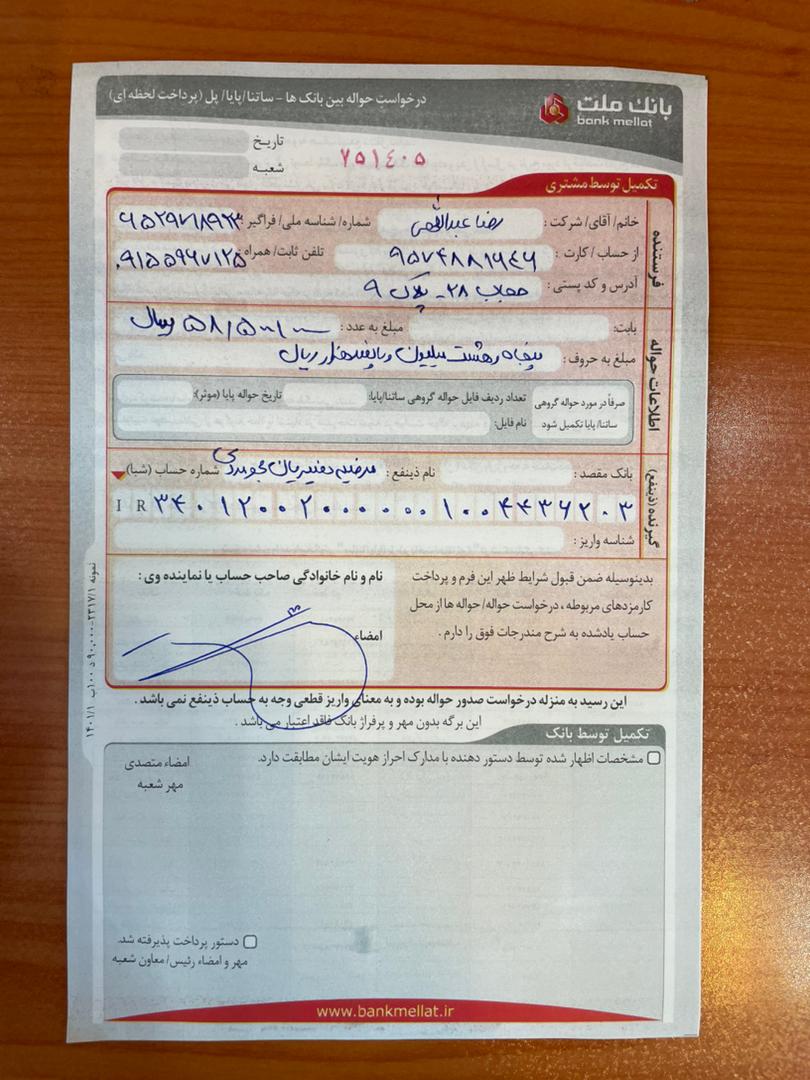 بانک ملت
bank mellat
درخواست حواله بین بانک ها - ساتنا/پایا/ پل (پرداخت لحظه ای)
تاریخ
۷۵۱۴۰۵
شعبه
تکمیل توسط مشتری
فرستنده
خانم/ آقای/ شرکت : رضا شماره/ شناسه ملی/ فراگیر :
از حساب/ کارت : تلفن ثابت/ همراه: ۰۹۱۵۵۹۶۷۱۲۵
آدرس و کد پستی : ۲۸ - پلاک ۹
اطلاعات حواله
بابت: مبلغ به عدد : ریال
مبلغ به حروف : پنجاه و هشت میلیون و پانصد هزار ریال
صرفاً در مورد حواله گروهی ساتنا/ پایا تکمیل شود
تعداد ردیف فایل حواله گروهی ساتنا/پایا: تاریخ حواله پایا (موثر):
نام فایل:
گیرنده (ذینفع)
بانک مقصد : نام ذینفع : مرضیه شماره حساب (شبا)
IR ۳۴۰۱۲۰۰۲۰۰۰۰۰۰۰۱۰۰۴۴۳۶۲۰۳
شناسه واریز :
بدینوسیله ضمن قبول شرایط ظهر این فرم و پرداخت
کارمزدهای مربوطه ، درخواست حواله/ حواله ها از محل
حساب یادشده به شرح مندرجات فوق را دارم .
نام و نام خانوادگی صاحب حساب یا نماینده وی :
امضاء
این رسید به منزله درخواست صدور حواله بوده و به معنای واریز قطعی وجه به حساب ذینفع نمی باشد .
این برگه بدون مهر و پرفراژ بانک فاقد اعتبار می باشد .
تکمیل توسط بانک
مشخصات اظهار شده توسط دستور دهنده با مدارک احراز هویت ایشان مطابقت دارد.
امضاء متصدی
مهر شعبه
دستور پرداخت پذیرفته شد.
مهر و امضاء رئیس/ معاون شعبه
www.bankmellat.ir